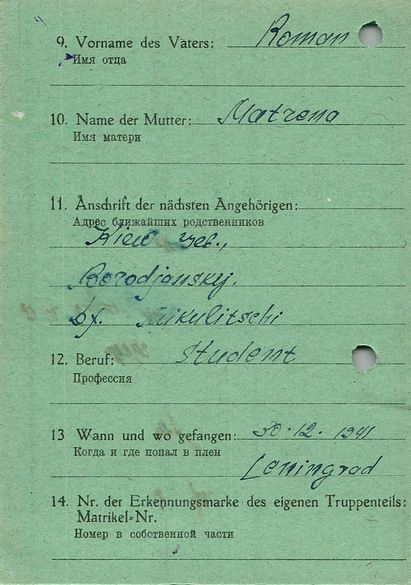 9. Vorname des Vaters: Roman
Имя отца
10. Name der Mutter: Matrena
Имя матери
11. Anschrift der nächsten Angehörigen:
Адрес ближайших родственников
Kiew Geb.,
Borodjansky.
Df. Mikulitschi
12. Beruf: Student
Профессия
13 Wann und wo gefangen: 30.12.1941
Когда и где попал в плен
Leningrad
14. Nr. der Erkennungsmarke des eigenen Truppenteils:
Matrikel-Nr.
Номер в собственной части